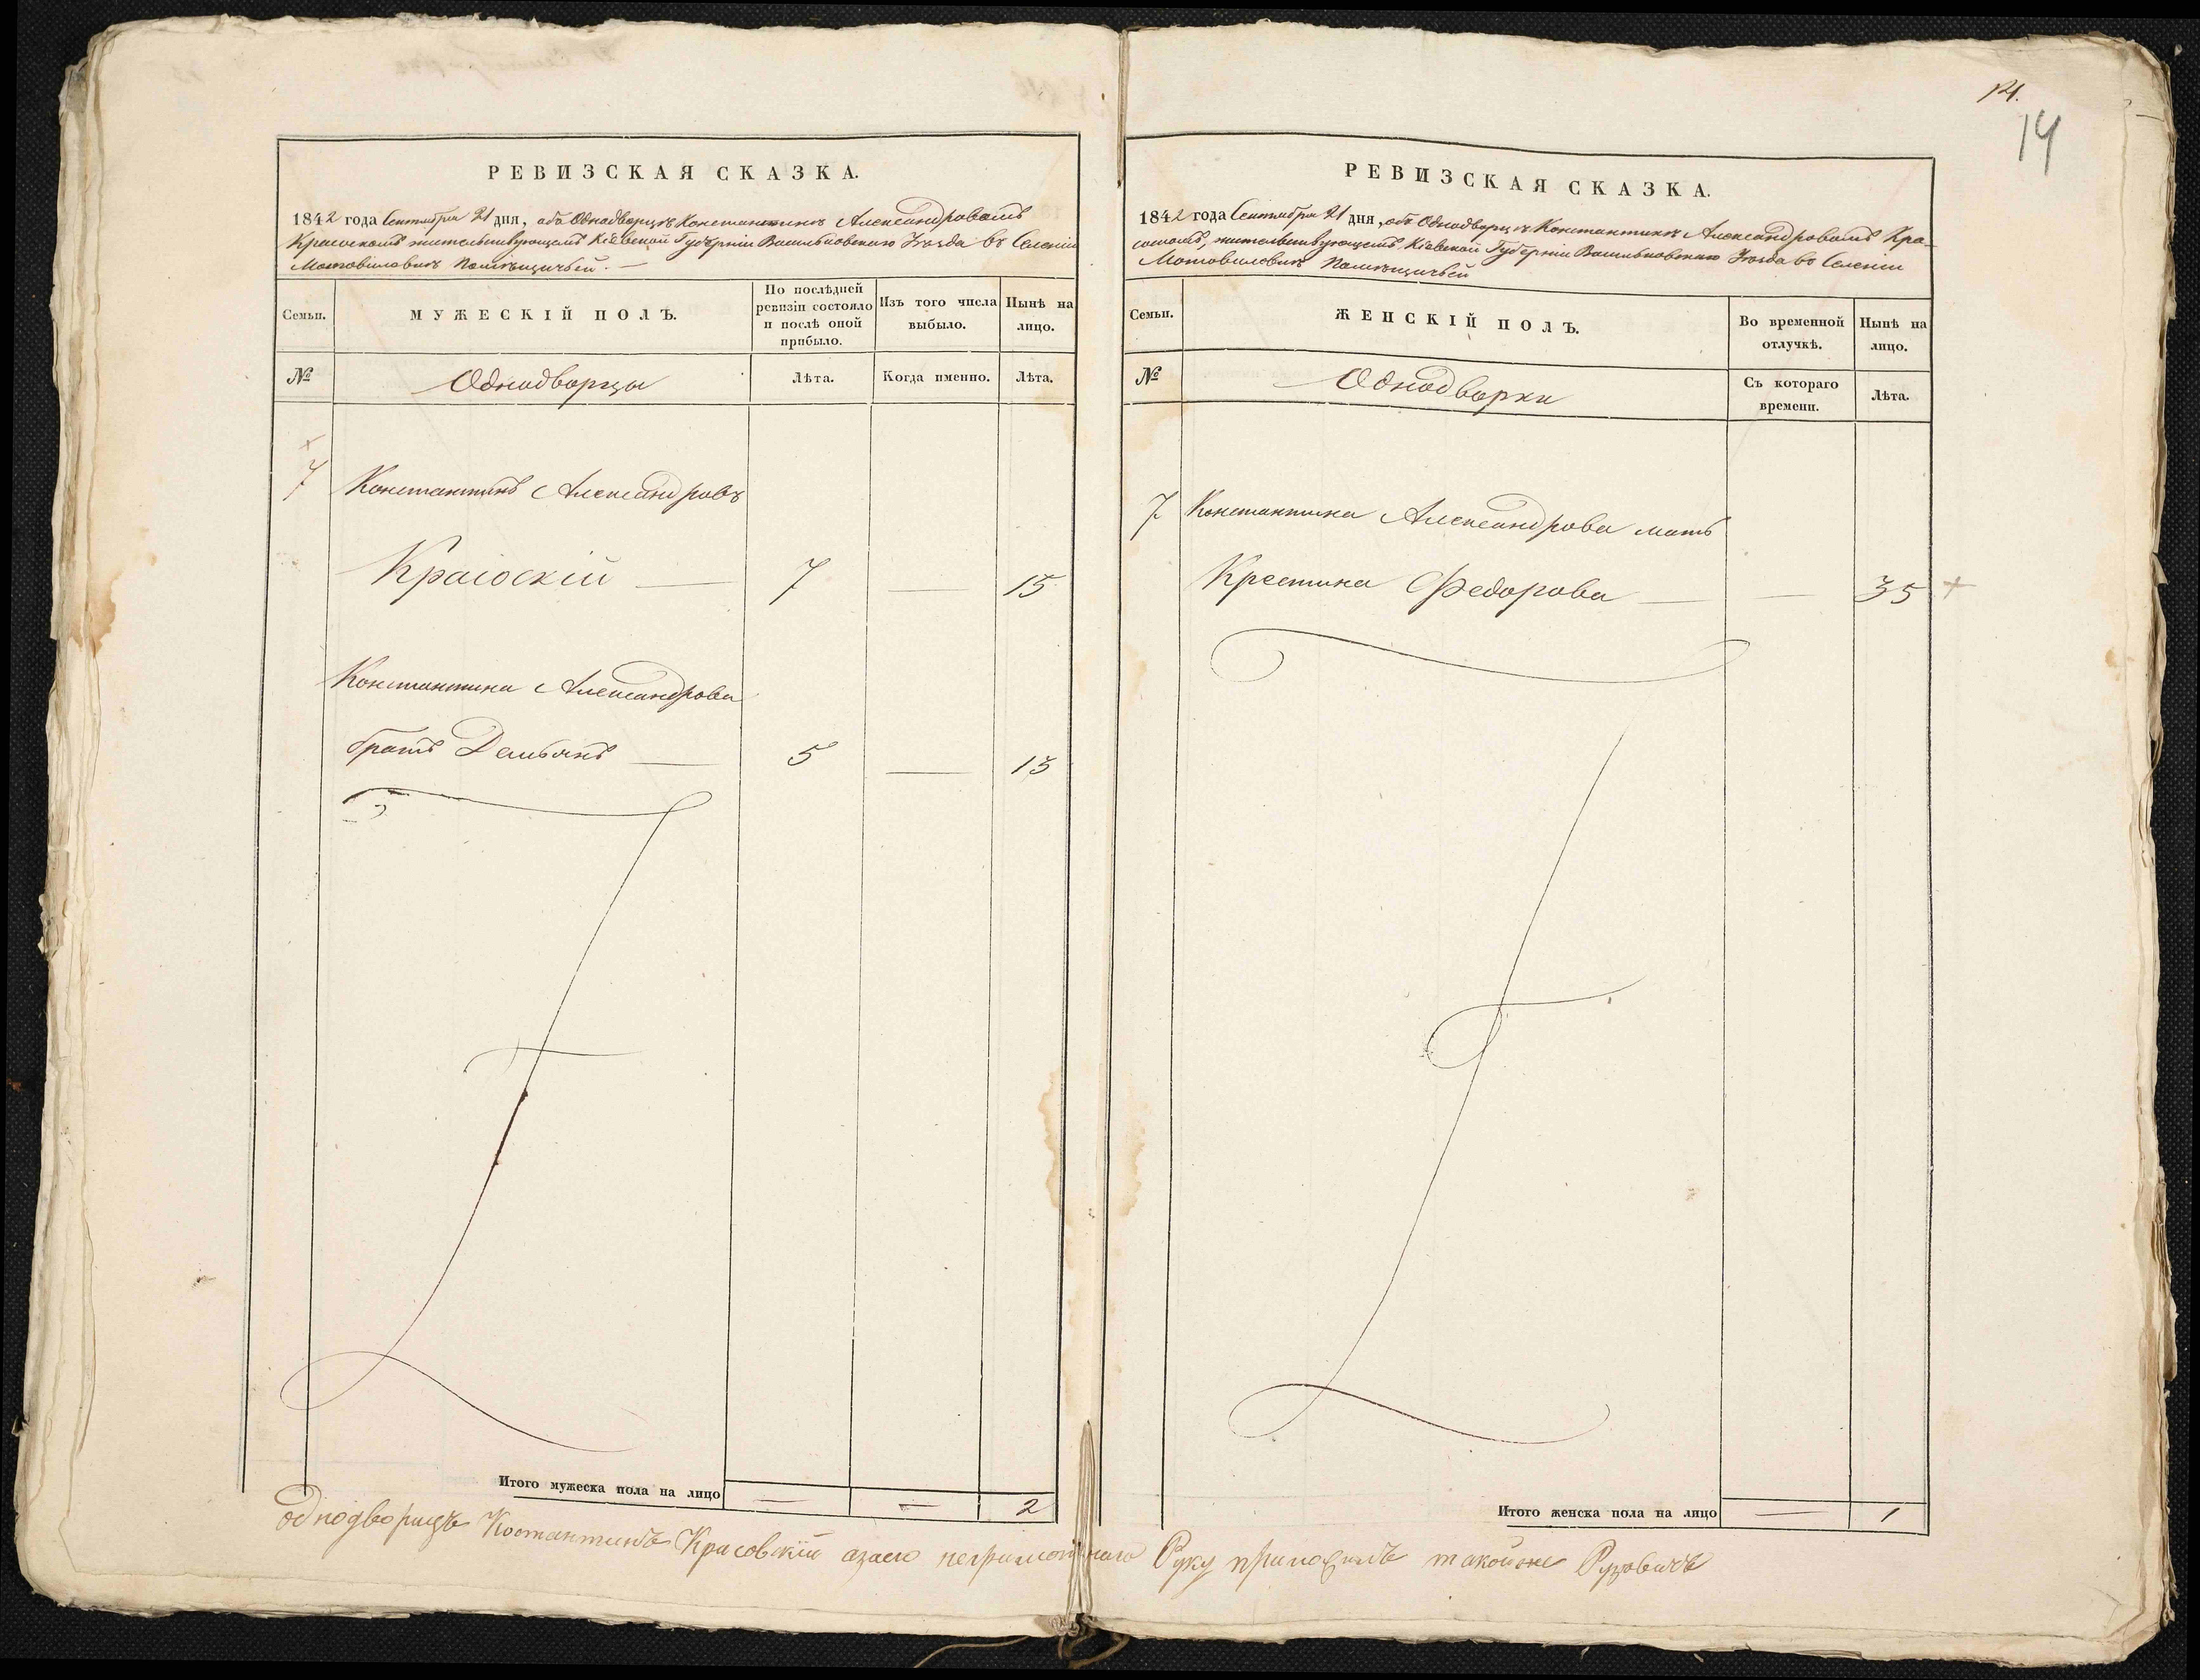 РЕВИЗСКАЯ СКАЗКА.
1842 года Сентября 21 дня, объ Однодворцѣ Константинѣ Александровомъ
жительствующемъ Кіевской Губерніи Васильковскаго Уѣзда въ Селеніи
Мотовиловкѣ Помѣщичьей. —
Семьи.
МУЖЕСКІЙ ПОЛЪ.
По послѣдней
ревизіи состояло
и послѣ оной
прибыло.
Изъ того числа
выбыло.
Нынѣ на
лицо.
№
Однодворцы
Лѣта.
Когда именно.
Лѣта.
7
Константинъ Александровъ
Красоскій — 7 — 15
Константина Александрова
братъ Демьянъ — 5 — 13
Итого мужеска пола на лицо — — 2
14.
14
РЕВИЗСКАЯ СКАЗКА.
1842 года Сентября 21 дня, объ Однодворцѣ Константинѣ Александровомъ Кра-
соскомъ, жительствующемъ Кіевской Губерніи Васильковскаго Уѣзда во Селеніи
Мотовиловкѣ Помѣщичьей
Семьи.
ЖЕНСКІЙ ПОЛЪ.
Во временной
отлучкѣ.
Нынѣ на
лицо.
№
Однодворки
Съ котораго
времени.
Лѣта.
7 Константина Александрова мать
Крестина Федорова — — 35
Итого женска пола на лицо — 1
однодворецъ Костантинъ Красовскій азаего неграмотнаго Руку приложилъ такойже